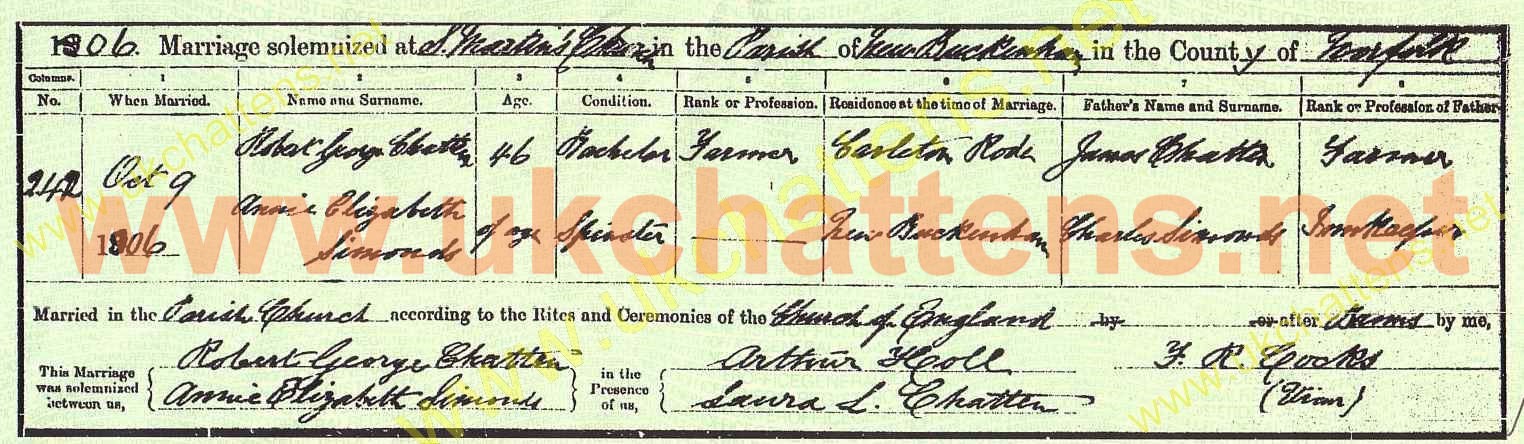 1906. Marriage solemnized at St. Martin's Church in the Parish of New Buckenham in the County of Norfolk
Columns. 1 2 3 4 5 6 7 8
No. When Married. Name and Surname. Age. Condition. Rank or Profession. Residence at the time of Marriage. Father's Name and Surname. Rank or Profession of Father.
242 Oct 9 1906 Robert George Chatten 46 Bachelor Farmer Carleton Rode James Chatten Farmer
Annie Elizabeth Simonds of age Spinster New Buckenham Charles Simonds Innkeeper
Married in the Parish Church according to the Rites and Ceremonies of the Church of England by or after Banns by me,
This Marriage was solemnized between us, Robert George Chatten Annie Elizabeth Simonds in the Presence of us, Arthur Holl Laura L. Chatten F. R. Cocks
www.ukchattens.net